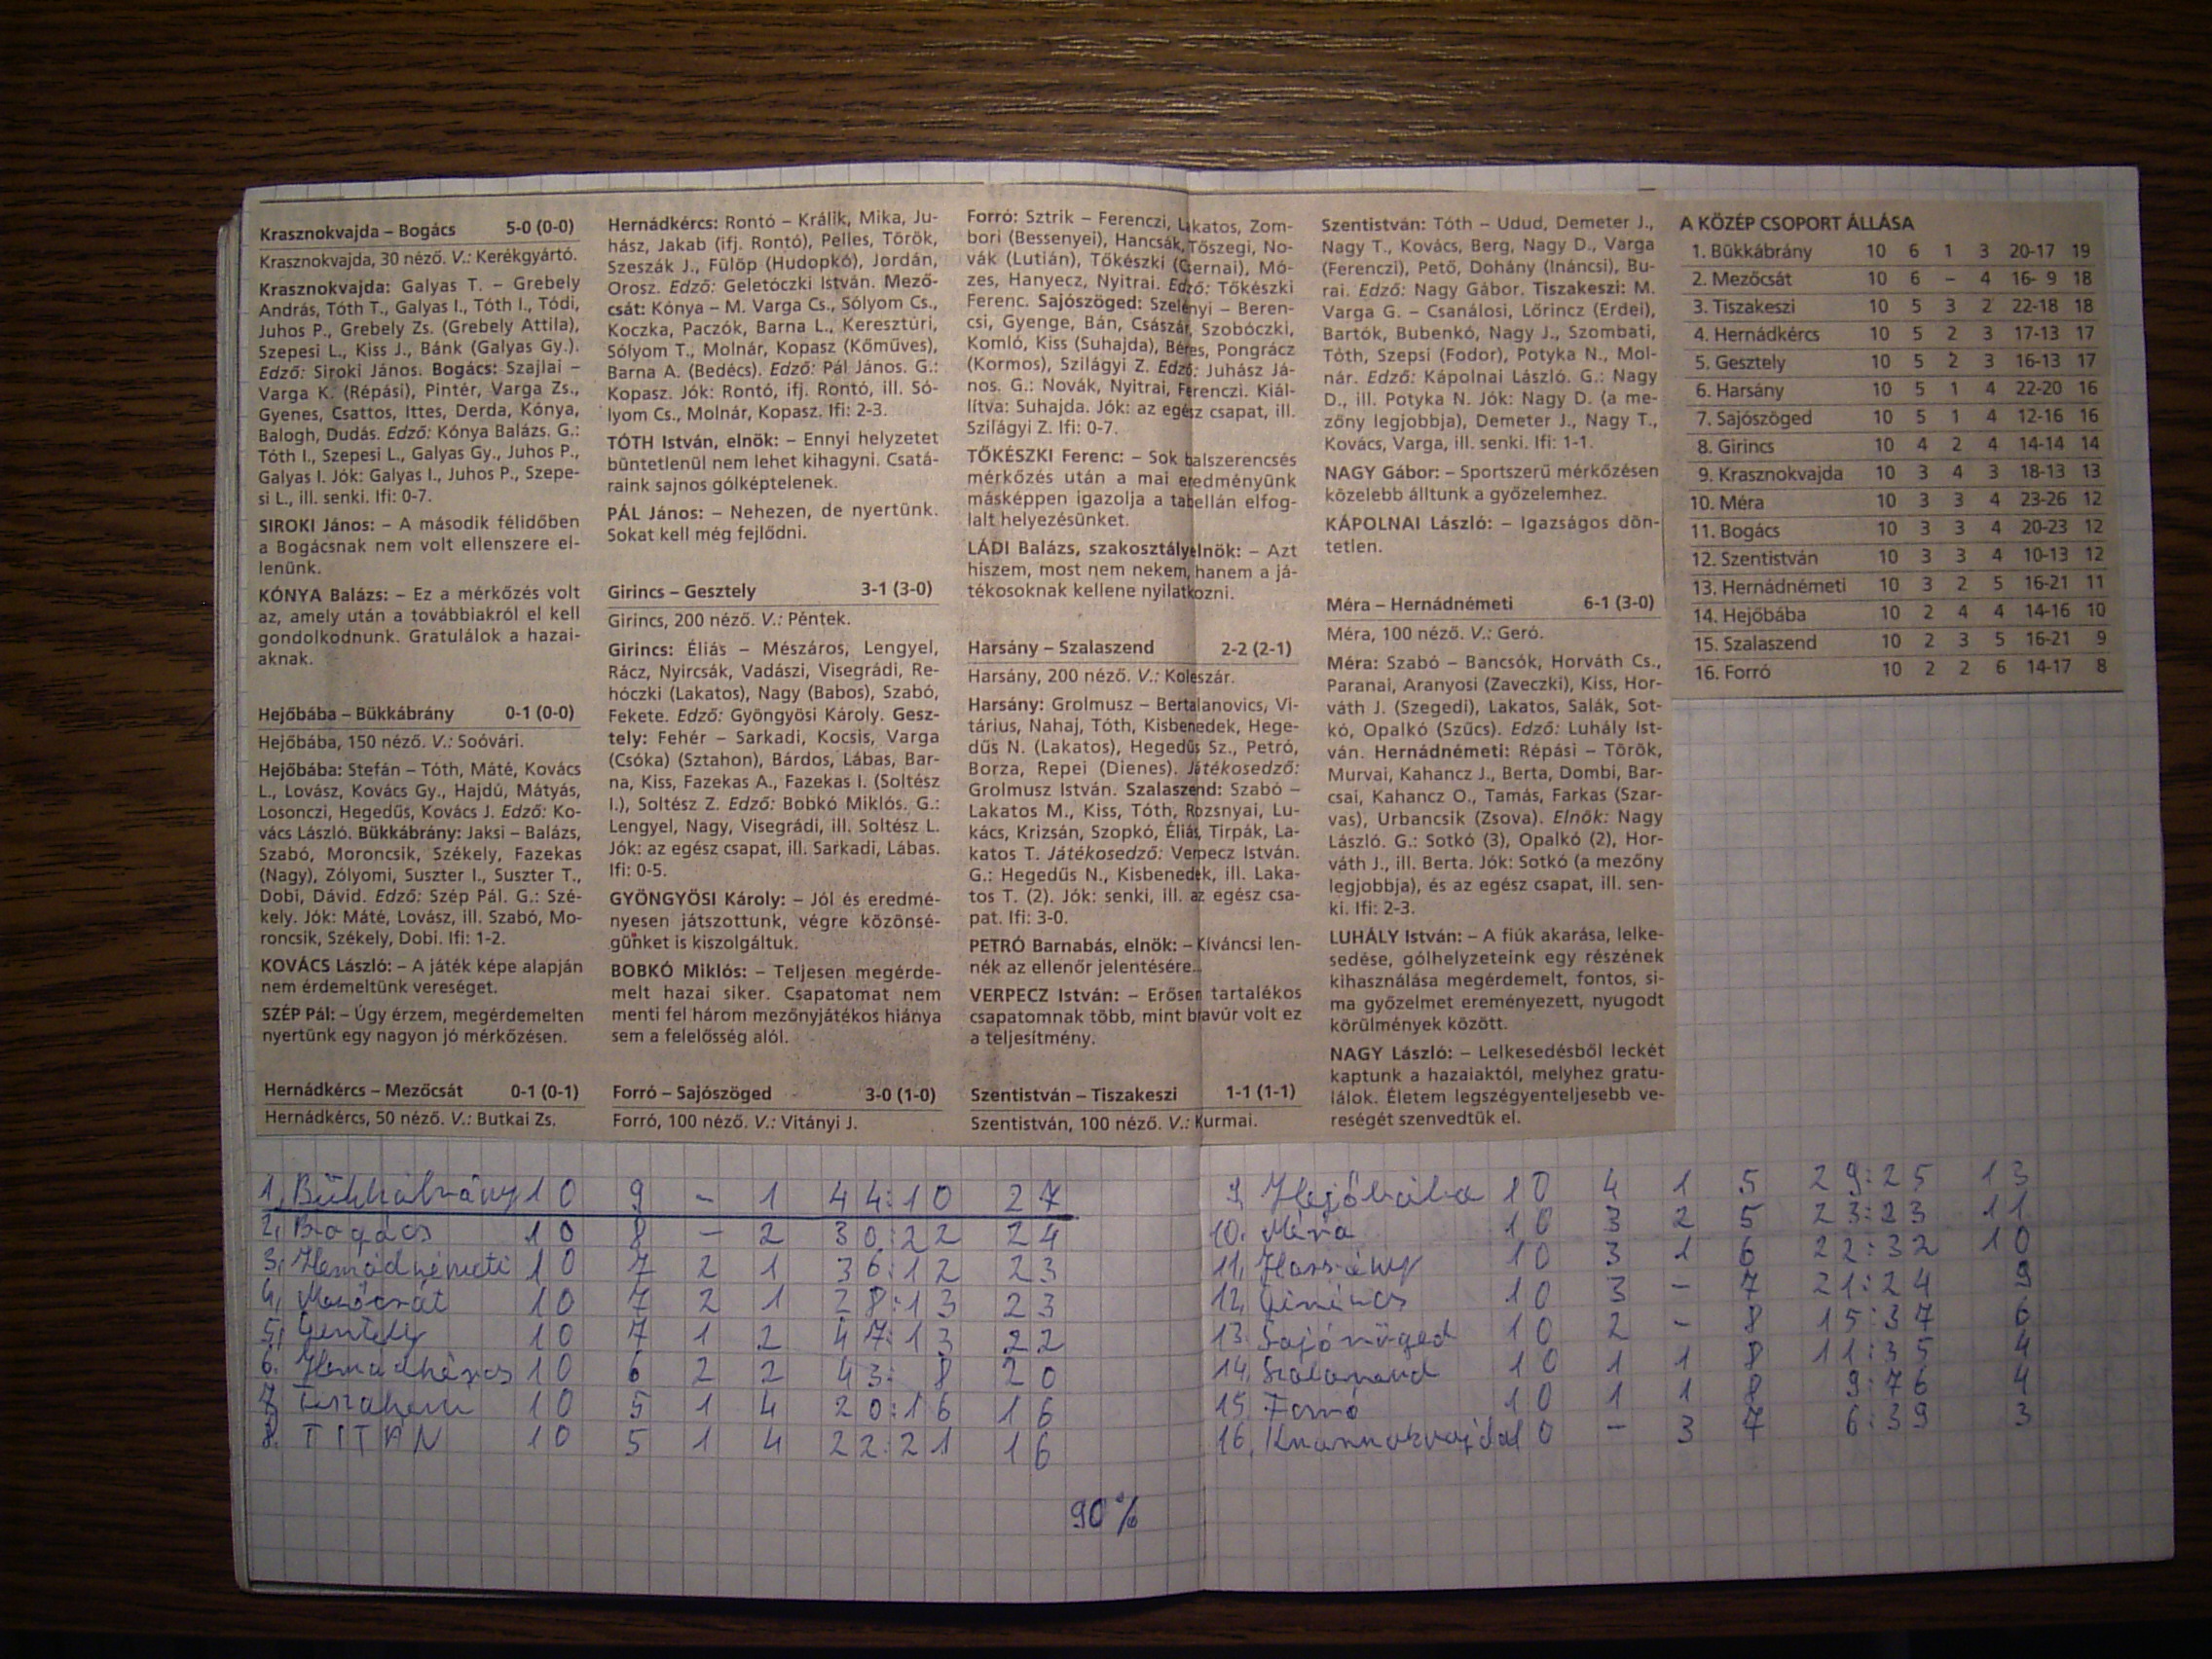 Krasznokvajda – Bogács 5-0 (0-0)
Krasznokvajda, 30 néző. V.: Kerékgyártó.
Krasznokvajda: Galyas T. – Grebely
András, Tóth T., Galyas I., Tóth I., Tódi,
Juhos P., Grebely Zs. (Grebely Attila),
Szepesi L., Kiss J., Bánk (Galyas Gy.).
Edző: Siroki János. Bogács: Szajlai –
Varga K. (Répási), Pintér, Varga Zs.,
Gyenes, Csattos, Ittes, Derda, Kónya,
Balogh, Dudás. Edző: Kónya Balázs. G.:
Tóth I., Szepesi L., Galyas Gy., Juhos P.,
Galyas I. Jók: Galyas I., Juhos P., Szepe-
si L., ill. senki. Ifi: 0-7.
SIROKI János: – A második félidőben
a Bogácsnak nem volt ellenszere el-
lenünk.
KÓNYA Balázs: – Ez a mérkőzés volt
az, amely után a továbbiakról el kell
gondolkodnunk. Gratulálok a hazai-
aknak.
Hejőbába – Bükkábrány 0-1 (0-0)
Hejőbába, 150 néző. V.: Soóvári.
Hejőbába: Stefán – Tóth, Máté, Kovács
L., Lovász, Kovács Gy., Hajdú, Mátyás,
Losonczi, Hegedűs, Kovács J. Edző: Ko-
vács László. Bükkábrány: Jaksi – Balázs,
Szabó, Moroncsik, Székely, Fazekas
(Nagy), Zólyomi, Suszter I., Suszter T.,
Dobi, Dávid. Edző: Szép Pál. G.: Szé-
kely. Jók: Máté, Lovász, ill. Szabó, Mo-
roncsik, Székely, Dobi. Ifi: 1-2.
KOVÁCS László: – A játék képe alapján
nem érdemeltünk vereséget.
SZÉP Pál: – Úgy érzem, megérdemelten
nyertünk egy nagyon jó mérkőzésen.
Hernádkércs – Mezőcsát 0-1 (0-1)
Hernádkércs, 50 néző. V.: Butkai Zs.
Hernádkércs: Rontó – Králik, Mika, Ju-
hász, Jakab (ifj. Rontó), Pelles, Török,
Szeszák J., Fülöp (Hudopkó), Jordán,
Orosz. Edző: Geletóczki István. Mező-
csát: Kónya – M. Varga Cs., Sólyom Cs.,
Koczka, Paczók, Barna L., Keresztúri,
Sólyom T., Molnár, Kopasz (Kőműves),
Barna A. (Bedécs). Edző: Pál János. G.:
Kopasz. Jók: Rontó, ifj. Rontó, ill. Só-
lyom Cs., Molnár, Kopasz. Ifi: 2-3.
TÓTH István, elnök: – Ennyi helyzetet
büntetlenül nem lehet kihagyni. Csatá-
raink sajnos gólképtelenek.
PÁL János: – Nehezen, de nyertünk.
Sokat kell még fejlődni.
Girincs – Gesztely 3-1 (3-0)
Girincs, 200 néző. V.: Péntek.
Girincs: Éliás – Mészáros, Lengyel,
Rácz, Nyircsák, Vadászi, Visegrádi, Re-
hóczki (Lakatos), Nagy (Babos), Szabó,
Fekete. Edző: Gyöngyösi Károly. Gesz-
tely: Fehér – Sarkadi, Kocsis, Varga
(Csóka) (Sztahon), Bárdos, Lábas, Bar-
na, Kiss, Fazekas A., Fazekas I. (Soltész
I.), Soltész Z. Edző: Bobkó Miklós. G.:
Lengyel, Nagy, Visegrádi, ill. Soltész L.
Jók: az egész csapat, ill. Sarkadi, Lábas.
Ifi: 0-5.
GYÖNGYÖSI Károly: – Jól és eredmé-
nyesen játszottunk, végre közönsé-
günket is kiszolgáltuk.
BOBKÓ Miklós: – Teljesen megérde-
melt hazai siker. Csapatomat nem
menti fel három mezőnyjátékos hiánya
sem a felelősség alól.
Forró – Sajószöged 3-0 (1-0)
Forró, 100 néző. V.: Vitányi J.
Forró: Sztrik – Ferenczi, Lakatos, Zom-
bori (Bessenyei), Hancsák, Tőszegi, No-
vák (Lutián), Tőkészki (Csernai), Mó-
zes, Hanyecz, Nyitrai. Edző: Tőkészki
Ferenc. Sajószöged: Szelényi – Beren-
csi, Gyenge, Bán, Császár, Szobóczki,
Komló, Kiss (Suhajda), Béres, Pongrácz
(Kormos), Szilágyi Z. Edző: Juhász Já-
nos. G.: Novák, Nyitrai, Ferenczi. Kiál-
lítva: Suhajda. Jók: az egész csapat, ill.
Szilágyi Z. Ifi: 0-7.
TŐKÉSZKI Ferenc: – Sok balszerencsés
mérkőzés után a mai eredményünk
másképpen igazolja a tabellán elfog-
lalt helyezésünket.
LÁDI Balázs, szakosztályelnök: – Azt
hiszem, most nem nekem, hanem a já-
tékosoknak kellene nyilatkozni.
Harsány – Szalaszend 2-2 (2-1)
Harsány, 200 néző. V.: Koleszár.
Harsány: Grolmusz – Bertalanovics, Vi-
tárius, Nahaj, Tóth, Kisbenedek, Hege-
dűs N. (Lakatos), Hegedűs Sz., Petró,
Borza, Repei (Dienes). Játékosedző:
Grolmusz István. Szalaszend: Szabó –
Lakatos M., Kiss, Tóth, Rozsnyai, Lu-
kács, Krizsán, Szopkó, Éliás, Tirpák, La-
katos T. Játékosedző: Verpecz István.
G.: Hegedűs N., Kisbenedek, ill. Laka-
tos T. (2). Jók: senki, ill. az egész csa-
pat. Ifi: 3-0.
PETRÓ Barnabás, elnök: – Kíváncsi len-
nék az ellenőr jelentésére...
VERPECZ István: – Erősen tartalékos
csapatomnak több, mint bravúr volt ez
a teljesítmény.
Szentistván – Tiszakeszi 1-1 (1-1)
Szentistván, 100 néző. V.: Kurmai.
Szentistván: Tóth – Udud, Demeter J.,
Nagy T., Kovács, Berg, Nagy D., Varga
(Ferenczi), Pető, Dohány (Ináncsi), Bu-
rai. Edző: Nagy Gábor. Tiszakeszi: M.
Varga G. – Csanálosi, Lőrincz (Erdei),
Bartók, Bubenkó, Nagy J., Szombati,
Tóth, Szepsi (Fodor), Potyka N., Mol-
nár. Edző: Kápolnai László. G.: Nagy
D., ill. Potyka N. Jók: Nagy D. (a me-
zőny legjobbja), Demeter J., Nagy T.,
Kovács, Varga, ill. senki. Ifi: 1-1.
NAGY Gábor: – Sportszerű mérkőzésen
közelebb álltunk a győzelemhez.
KÁPOLNAI László: – Igazságos dön-
tetlen.
Méra – Hernádnémeti 6-1 (3-0)
Méra, 100 néző. V.: Geró.
Méra: Szabó – Bancsók, Horváth Cs.,
Paranai, Aranyosi (Zaveczki), Kiss, Hor-
váth J. (Szegedi), Lakatos, Salák, Sot-
kó, Opalkó (Szűcs). Edző: Luhály Ist-
ván. Hernádnémeti: Répási – Török,
Murvai, Kahancz J., Berta, Dombi, Bar-
csai, Kahancz O., Tamás, Farkas (Szar-
vas), Urbancsik (Zsova). Elnök: Nagy
László. G.: Sotkó (3), Opalkó (2), Hor-
váth J., ill. Berta. Jók: Sotkó (a mezőny
legjobbja), és az egész csapat, ill. sen-
ki. Ifi: 2-3.
LUHÁLY István: – A fiúk akarása, lelke-
sedése, gólhelyzeteink egy részének
kihasználása megérdemelt, fontos, si-
ma győzelmet ereményezett, nyugodt
körülmények között.
NAGY László: – Lelkesedésből leckét
kaptunk a hazaiaktól, melyhez gratu-
lálok. Életem legszégyenteljesebb ve-
reségét szenvedtük el.
A KÖZÉP CSOPORT ÁLLÁSA
1. Bükkábrány 10 6 1 3 20-17 19
2. Mezőcsát 10 6 – 4 16- 9 18
3. Tiszakeszi 10 5 3 2 22-18 18
4. Hernádkércs 10 5 2 3 17-13 17
5. Gesztely 10 5 2 3 16-13 17
6. Harsány 10 5 1 4 22-20 16
7. Sajószöged 10 5 1 4 12-16 16
8. Girincs 10 4 2 4 14-14 14
9. Krasznokvajda 10 3 4 3 18-13 13
10. Méra 10 3 3 4 23-26 12
11. Bogács 10 3 3 4 20-23 12
12. Szentistván 10 3 3 4 10-13 12
13. Hernádnémeti 10 3 2 5 16-21 11
14. Hejőbába 10 2 4 4 14-16 10
15. Szalaszend 10 2 3 5 16-21 9
16. Forró 10 2 2 6 14-17 8
1, Bükkábrány 10 9 – 1 44:10 27
2, Bogács 10 8 – 2 30:22 24
3, Hernádnémeti 10 7 2 1 36:12 23
4, Mezőcsát 10 7 2 1 28:13 23
5, Gesztely 10 7 1 2 47:13 22
6. Hernádkércs 10 6 2 2 43: 8 20
7. Tiszakeszi 10 5 1 4 20:16 16
8. TITÁN 10 5 1 4 22:21 16
9, Hejőbába 10 4 1 5 29:25 13
10. Méra 10 3 2 5 23:23 11
11, Harsány 10 3 1 6 22:32 10
12, Girincs 10 3 – 7 21:24 9
13. Sajószöged 10 2 – 8 15:37 6
14, Szalaszend 10 1 1 8 11:35 4
15, Forró 10 1 1 8 9:76 4
16, Krasznokvajda 10 – 3 7 6:39 3
90%